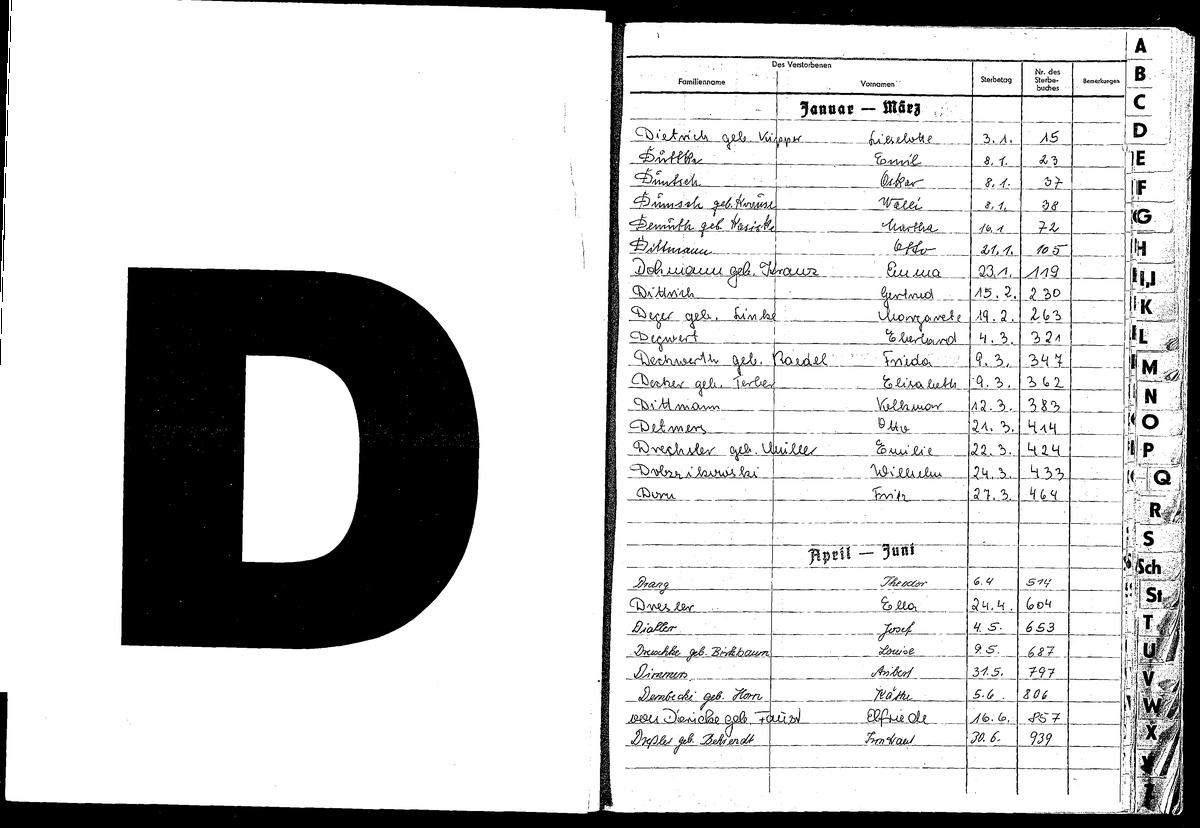 D
Des Verstorbenen
Familienname Vornamen Sterbetag Nr. des Sterbe-buches Bemerkungen
Januar — März
Dietrich geb. Küpper Lieselotte 3.1. 15
Emil 8.1. 23
Oskar 8.1. 37
geb. Krause Walli 8.1. 38
Demuth geb. Martha 16.1 72
Dittmann Otto 21.1. 105
Dohmann geb. Kranz Emma 23.1. 119
Dittrich Gertrud 15.2. 230
Deger geb. Linke Margarete 19.2. 263
Degwert Eberhard 4.3. 321
Dechwerth geb. Raedel Frieda 9.3. 347
Decker geb. Ferber Elisabeth 9.3. 362
Dittmann Volkmar 12.3. 383
Detmers Otto 21.3. 414
Drechsler geb. Müller Emilie 22.3. 424
Dobrzikowski Wilhelm 24.3. 433
Dorn Fritz 27.3. 464
April — Juni
Drang Theodor 6.4 514
Dresler Ella 24.4. 604
Josef 4.5. 653
geb. Birkbaum Louise 9.5. 687
Aribert 31.5. 797
Dembecki geb. Horn Käthe 5.6. 806
von geb. Faust Elfriede 16.6. 857
Dreßler geb. Behrendt 30.6. 939
A
B
C
D
E
F
G
H
I,J
K
L
M
N
O
P
Q
R
S
Sch
St
T
U
V
W
X